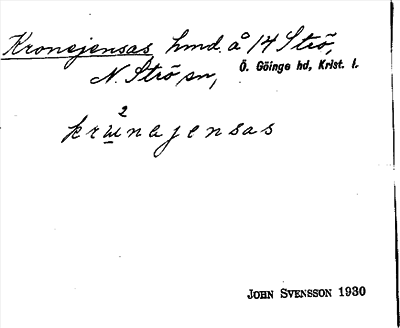 Kronejensas hmd. å 14 Strö,
N. Strö sn, Ö. Göinge hd, Krist. l.
2
krɯnajensas
JOHN SVENSSON 1930